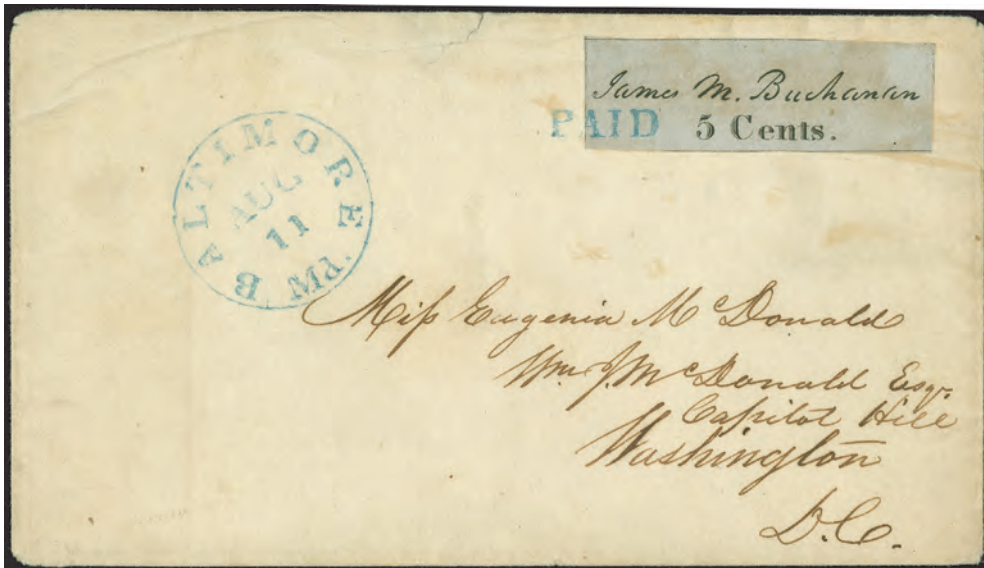 James M. Buchanan
PAID 5 Cents.
BALTIMORE Md.
AUG
11
Miſs Eugenia McDonald
Wm. J. McDonald Esqr.
Capitol Hill
Washington
D.C.